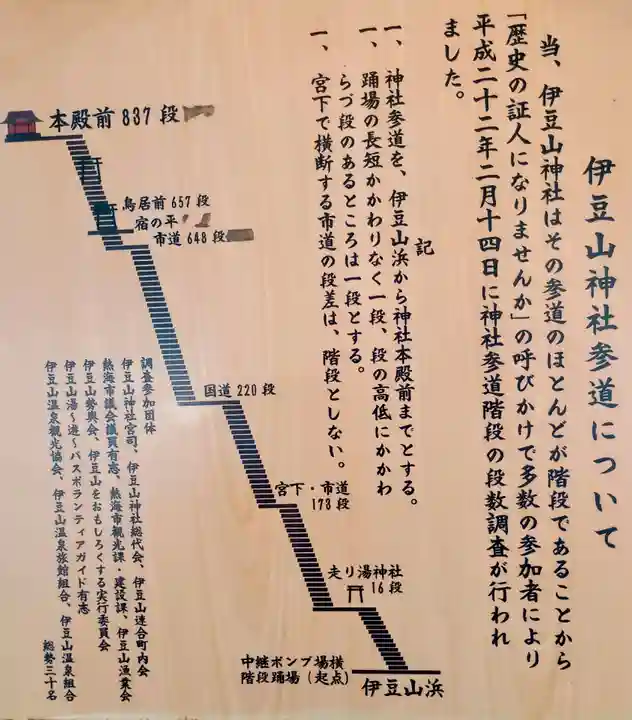 伊豆山神社参道について
当、伊豆山神社はその参道のほとんどが階段であることから
「歴史の証人になりませんか」の呼びかけで多数の参加者により
平成二十二年二月十四日に神社参道階段の段数調査が行われ
ました。
記
一、神社参道を、伊豆山浜から神社本殿前までとする。
一、踊場の長短かかわりなく一段、段の高低にかかわ
らづ段のあるところは一段とする。
一、宮下で横断する市道の段差は、階段としない。
本殿前837段
鳥居前657段
宿の平
市道648段
国道220段
宮下・市道
178段
走り湯神社
16段
中継ポンプ場横
階段踊場(起点)
伊豆山浜
調査参加団体
伊豆山神社宮司、伊豆山神社総代会、伊豆山連合町内会
熱海市議会議員有志、熱海市観光課・建設課、伊豆山漁業会
伊豆山勢輿会、伊豆山をおもしろくする実行委員会
伊豆山湯～遊～バスボランティアガイド有志
伊豆山温泉観光協会、伊豆山温泉旅館組合、伊豆山温泉組合
総勢三十名